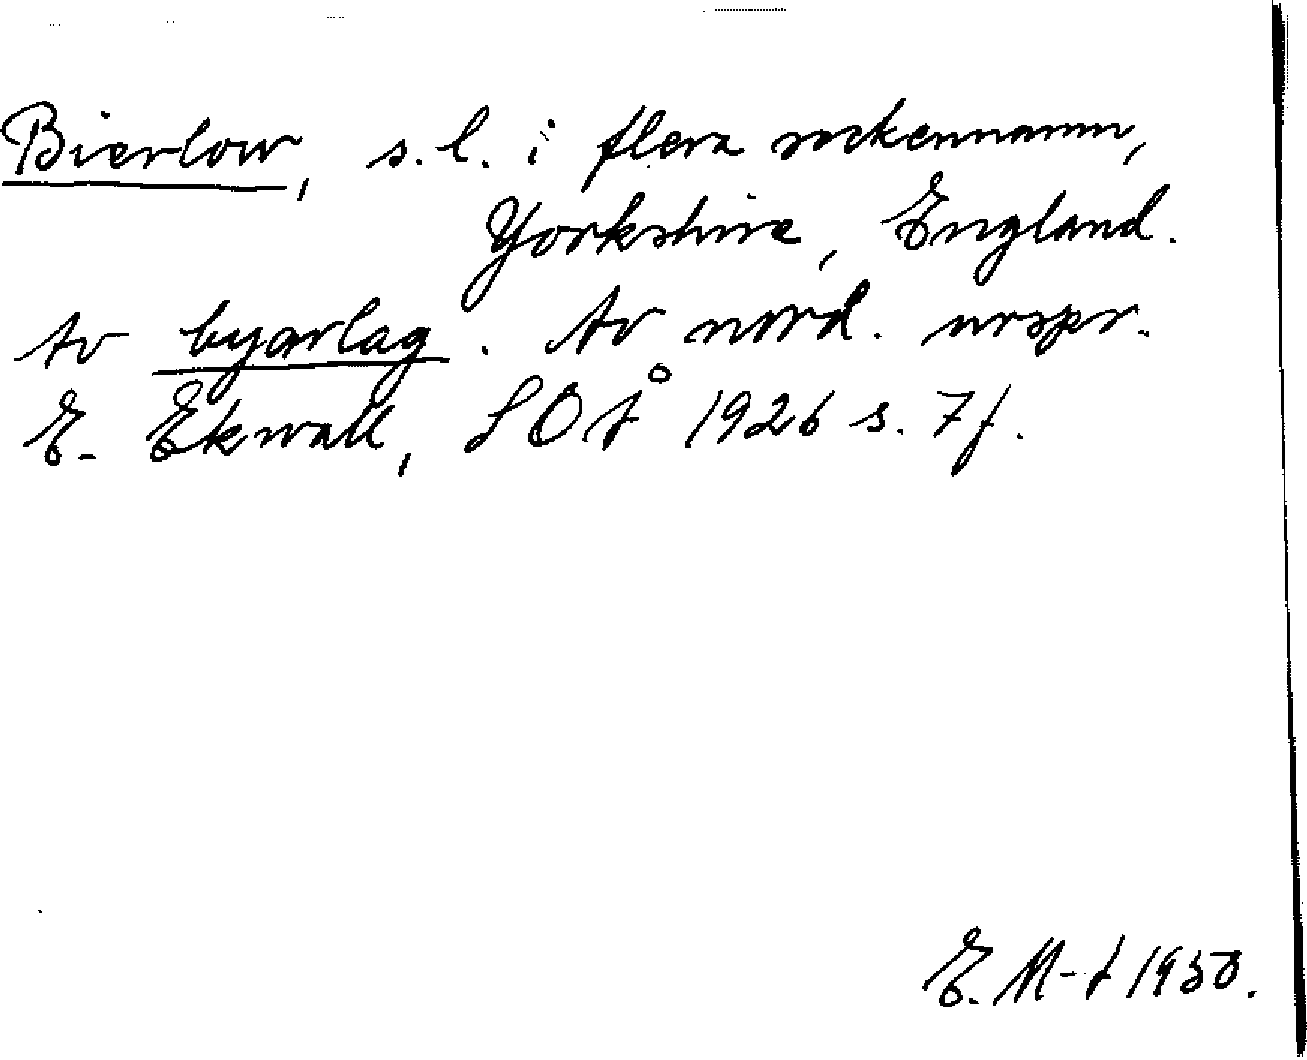 Bierlow, s.l. i flera sockennamn,
Yorkshire, England.
Av byarlag. Av nord. urspr.
E. Ekwall, SOÅ 1926 s. 7f.
E. M-t 1950.